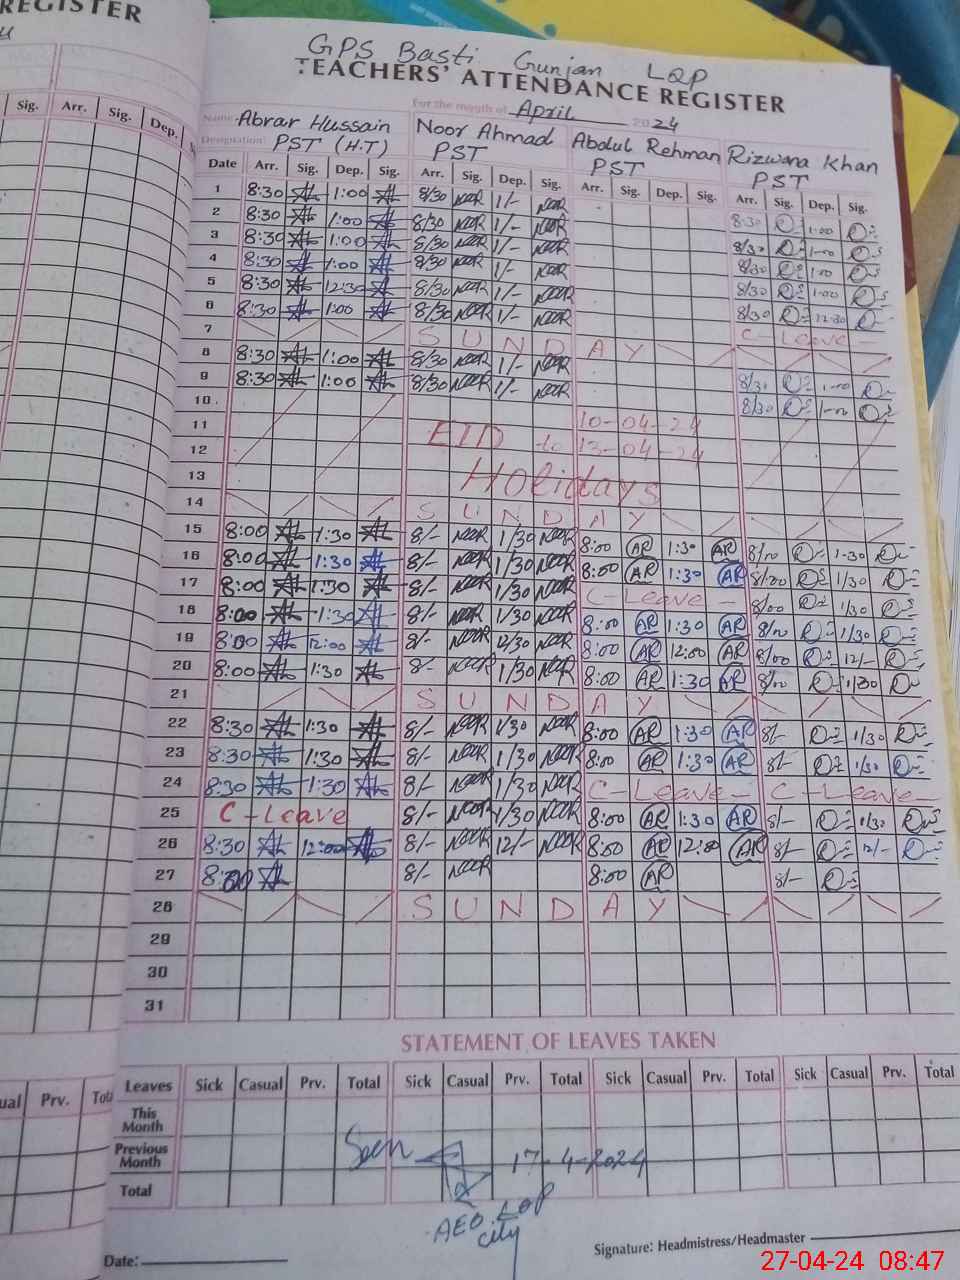 REGISTER
GPS Basti Gunjan LQP
TEACHERS' ATTENDANCE REGISTER
For the month of April 2024
Name: Abrar Hussain Noor Ahmad Abdul Rehman Rizwana Khan
Designation: PST (H.T) PST PST PST
Sig. Arr. Sig. Dep.
Date Arr. Sig. Dep. Sig. Arr. Sig. Dep. Sig. Arr. Sig. Dep. Sig. Arr. Sig. Dep. Sig.
1 8:30 AL 1:00 AL 8/30 NOOR 1/- NOOR 8:30 1:00
2 8:30 AL 1:00 AL 8/30 NOOR 1/- NOOR 8/30 1-00
3 8:30 AL 1:00 AL 8/30 NOOR 1/- NOOR 8/30 1-00
4 8:30 AL 1:00 AL 8/30 NOOR 1/- NOOR 8/30 1-00
5 8:30 AL 12:30 AL 8/30 NOOR 1/- NOOR 8/30 12-30
6 8:30 AL 1:00 AL 8/30 NOOR 1/- NOOR C-Leave-
7 SUNDAY
8 8:30 AL 1:00 AL 8/30 NOOR 1/- NOOR 8/30 1-00
9 8:30 AL 1:00 AL 8/30 NOOR 1/- NOOR 8/30 1-00
10
11 EID 10-04-24
12 to 13-04-24
13 Holidays
14 SUNDAY
15 8:00 AL 1:30 AL 8/- NOOR 1/30 NOOR 8:00 AR 1:30 AR 8/00 1-30
16 8:00 AL 1:30 AL 8/- NOOR 1/30 NOOR 8:00 AR 1:30 AR 8/00 1/30
17 8:00 AL 1:30 AL 8/- NOOR 1/30 NOOR C-Leave- 8/00 1/30
18 8:00 AL 1:30 AL 8/- NOOR 1/30 NOOR 8:00 AR 1:30 AR 8/00 1/30
19 8:00 AL 12:00 AL 8/- NOOR 12/30 NOOR 8:00 AR 12:00 AR 8/00 12/-
20 8:00 AL 1:30 AL 8/- NOOR 1/30 NOOR 8:00 AR 1:30 AR 8/00 1/30
21 SUNDAY
22 8:30 AL 1:30 AL 8/- NOOR 1/30 NOOR 8:00 AR 1:30 AR 8/- 1/30
23 8:30 AL 1:30 AL 8/- NOOR 1/30 NOOR 8:00 AR 1:30 AR 8/- 1/30
24 8:30 AL 1:30 AL 8/- NOOR 1/30 NOOR C-Leave- C-Leave-
25 C-Leave 8/- NOOR 1/30 NOOR 8:00 AR 1:30 AR 8/- 1/30
26 8:30 AL 12:00 AL 8/- NOOR 12/- NOOR 8:00 AR 12:00 AR 8/- 12/-
27 8:00 AL 8/- NOOR 8:00 AR 8/-
28 SUNDAY
29
30
31
STATEMENT OF LEAVES TAKEN
Prv.
Leaves Sick Casual Prv. Total Sick Casual Prv. Total Sick Casual Prv. Total Sick Casual Prv. Total
This Month
Previous Month
Total
Seen 17-4-2024
AEO LQP
City
Date:
Signature: Headmistress/Headmaster
27-04-24 08:47